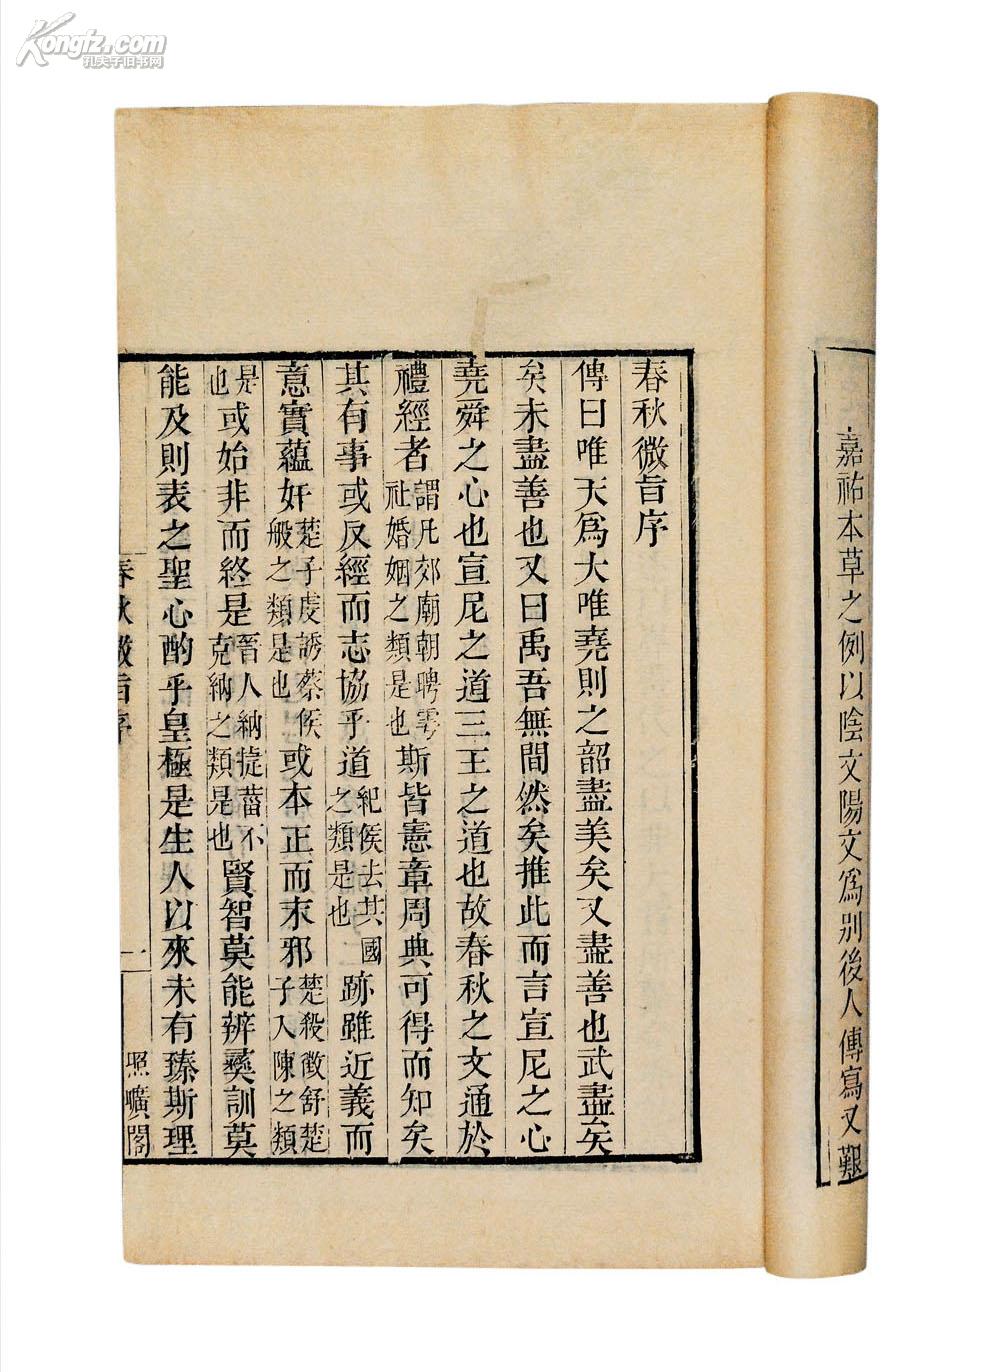 Kongfz.com
孔夫子旧书网
嘉祐本草之例以陰文陽文爲别後人傳寫又艱
春秋微旨序
傳曰唯天爲大唯堯則之韶盡美矣又盡善也武盡美
矣未盡善也又曰禹吾無間然矣推此而言宣尼之心
堯舜之心也宣尼之道三王之道也故春秋之文通於
禮經者謂凡郊廟朝聘雩社婚姻之類是也斯皆憲章周典可得而知矣
其有事或反經而志協乎道紀侯去其國之類是也跡雖近義而
意實蘊奸楚子虔誘蔡侯般之類是也或本正而末邪楚殺徵舒楚子入陳之類
是也或始非而終是晉人納捷菑不克納之類是也賢智莫能辨彝訓莫
能及則表之聖心酌乎皇極是生人以來未有臻斯理
春秋微旨序
一
照曠閣